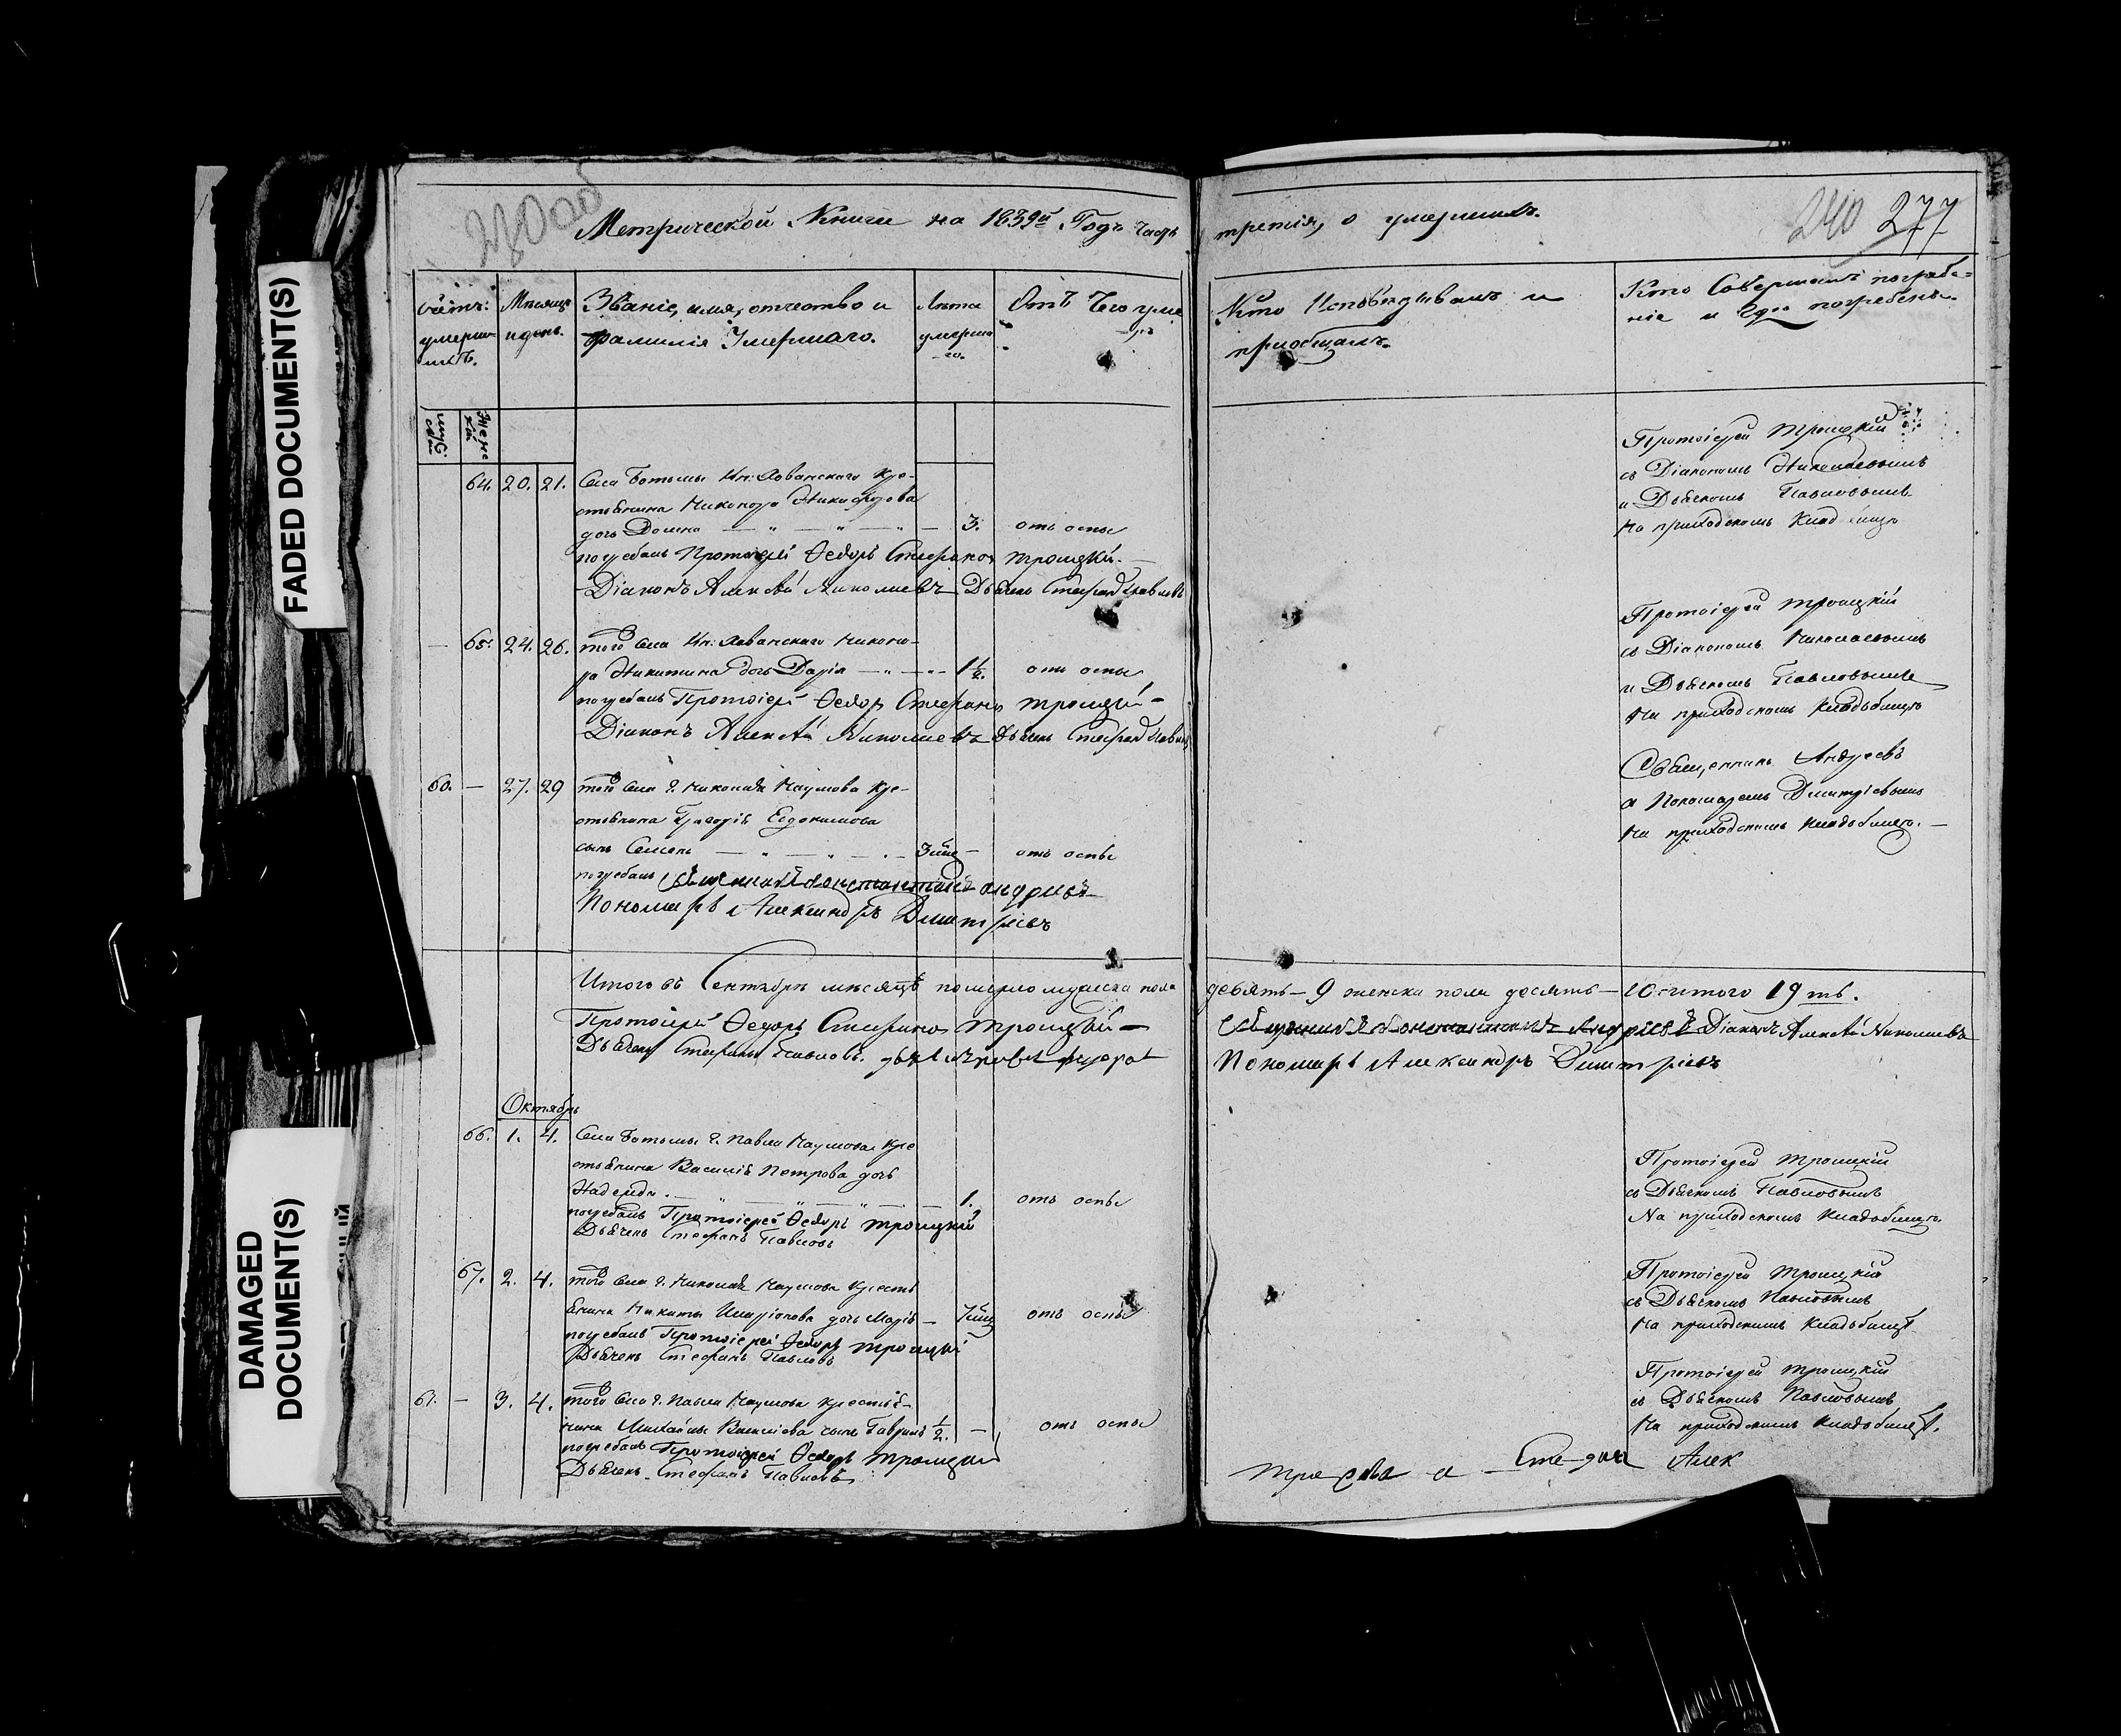 FADED DOCUMENT(S)
DAMAGED
DOCUMENT(S)
240об
Метрической Книги на 1839й Годъ часть
третія, о умершихъ.
240 277
счетъ умершихъ.
Мѣсяцъ и день.
Званіе, имя, отчество и
фамилія Умершаго.
Лѣта
умерша
го.
Отъ Чего уме
ръ
Кто Исповѣдывалъ и
пріобщалъ.
Кто Совершалъ погребе=
ніе и Гдѣ погребены.
мужска
женска
64. 20. 21. Села Ботьмы Кн: Хованскаго Кре-
стьянина Никонора Никифорова
дочь Домна — 3. отъ оспы
погребалъ Протоіерей Ѳедоръ Стефановъ Троицкій
Діаконъ Алексѣй Николаевъ Дьячекъ Стефанъ Павловъ
Протоіерей Троицкій
съ Діакономъ Николаевымъ
и Дьячкомъ Павловымъ
На приходскомъ Кладбищѣ
— 65. 24. 26. того Села Кн: Хованскаго Никоно-
ра Никитина дочь Дарія — 1½. отъ оспы
погребалъ Протоіерей Ѳедоръ Стефановъ Троицкій
Діаконъ Алексѣй Николаевъ Дьячекъ Стефанъ Павловъ
Протоіерей Троицкій
съ Діакономъ Николаевымъ
и Дьячкомъ Павловымъ
На приходскомъ Кладбищѣ
60. — 27. 29 того Села Г. Николая Наумова Кре-
стьянина Григорія Евдокимова
сынъ Семенъ — 3 мѣс — отъ оспы
погребалъ Священникъ Константинъ Андреевъ
Пономарь Александръ Дмитріевъ
Священникъ Андреевъ
съ Пономаремъ Дмитріевымъ
На приходскомъ Кладбищѣ. —
Итого въ Сентябрѣ мѣсяцѣ померло мужска пола
девять — 9 женска пола десять — 10 итого 19ть.
Протоіерей Ѳедоръ Стефановъ Троицкій
Священникъ Константинъ Андреевъ Діаконъ Алексѣй Николаевъ
Дьячекъ Стефанъ Павловъ.
Пономарь Александръ Дмитріевъ
Октябрь
66. 1. 4. Села Ботьмы Г. Павла Наумова Кре
стьянина Василія Петрова дочь
Надежда. — 1. отъ оспы
погребалъ Протоіерей Ѳедоръ Троицкій
Дьячекъ Стефанъ Павловъ
Протоіерей Троицкій
съ Дьячкомъ Павловымъ
На приходскомъ Кладбищѣ.
67. 2. 4. того Села Г. Николая Наумова Кресть
янина Никиты Иларіонова дочь Марія — 7 мѣс отъ оспы
погребалъ Протоіерей Ѳедоръ Троицкій
Дьячекъ Стефанъ Павловъ
Протоіерей Троицкій
съ Дьячкомъ Павловымъ
На приходскомъ Кладбищѣ
61. — 3. 4. того Села Г. Павла Наумова Крестья-
нина Михайлы Васильева сынъ Гавріилъ ½. — отъ оспы
погребалъ Протоіерей Ѳедоръ Троицкій
Дьячекъ Стефанъ Павловъ
Протоіерей Троицкій
съ Дьячкомъ Павловымъ
На приходскомъ Кладбищѣ.
Алек